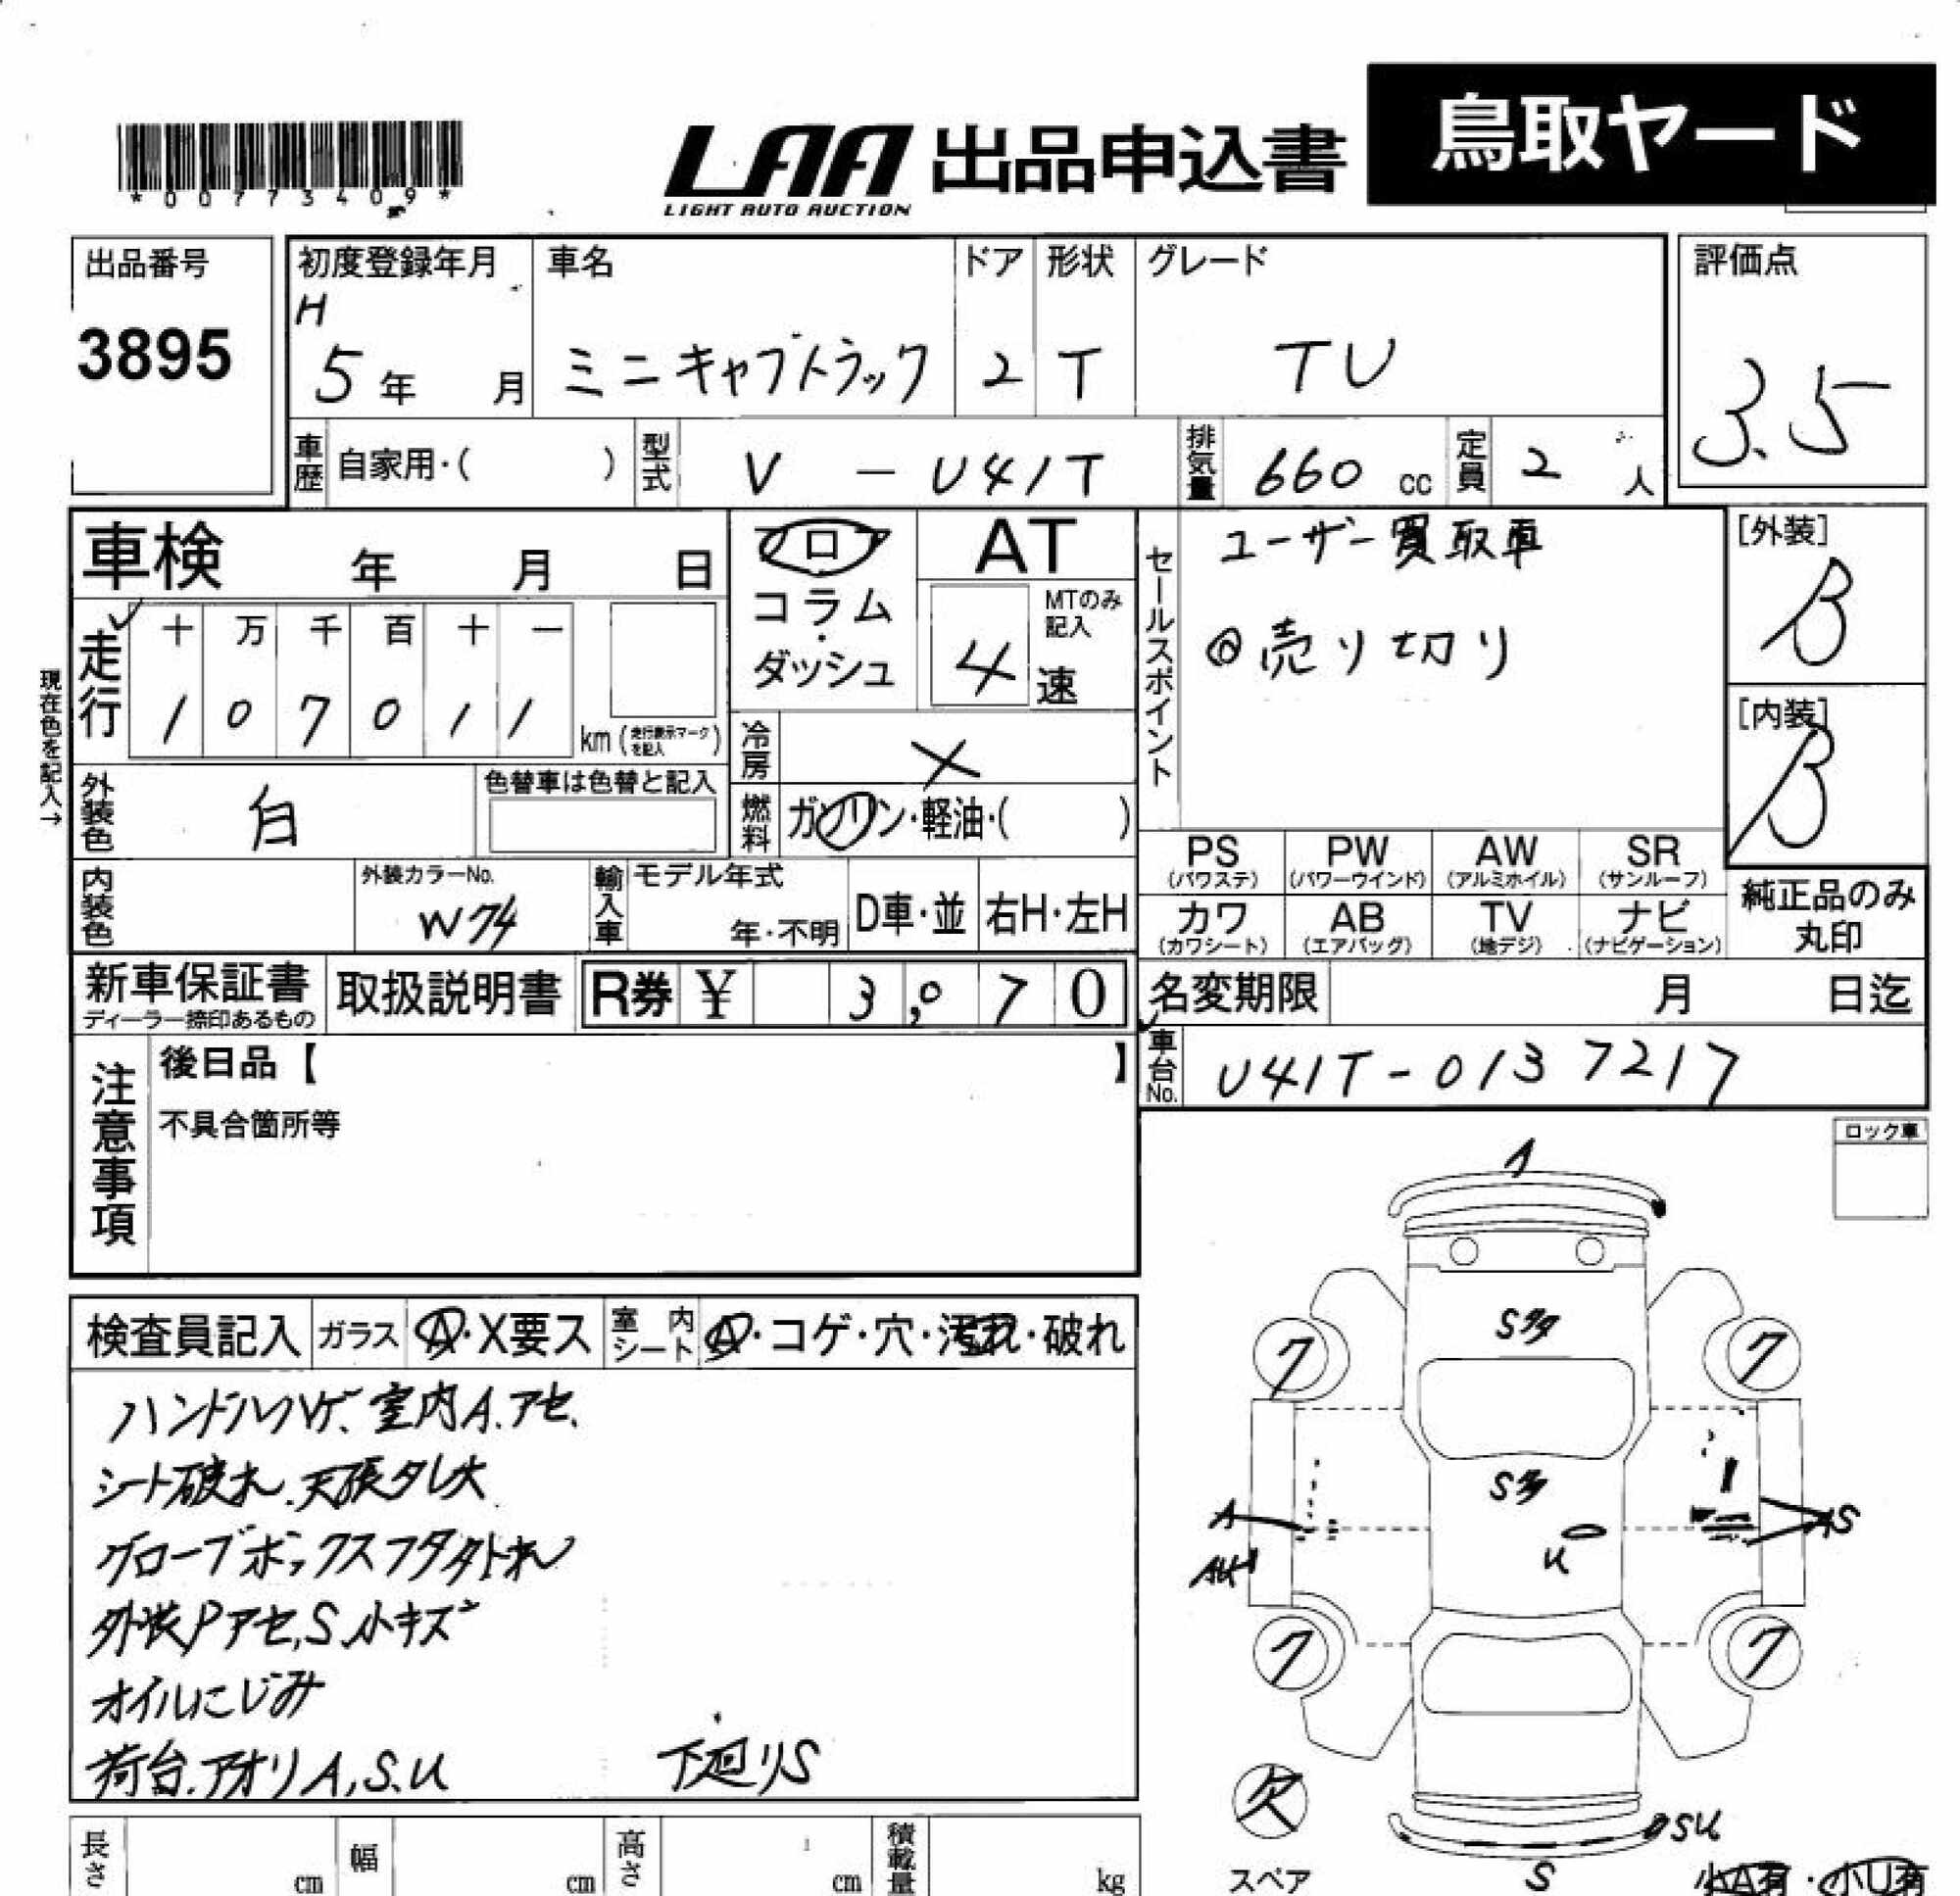 鳥取ヤード
*00773409*
LAA 出品申込書
LIGHT AUTO AUCTION
出品番号
3895
初度登録年月
H
5年 月
車名
ミニキャブトラック
ドア
2
形状
T
グレード
TU
評価点
3.5
車歴 自家用・( )
型式 V - U41T
排気量 660 cc
定員 2 人
車検 年 月 日
フロア
コラム・ダッシュ
AT
MTのみ記入
4 速
セールスポイント
ユーザー買取車
◎売り切り
[外装]
B
[内装]
B
現在色を記入→
走行
十 万 千 百 十 一
1 0 7 0 1 1
km (走行表示マークを記入)
冷房 ×
外装色 白
色替車は色替と記入
燃料 ガソリン・軽油・( )
PS (パワステ)
PW (パワーウインド)
AW (アルミホイル)
SR (サンルーフ)
カワ (カワシート)
AB (エアバッグ)
TV (地デジ)
ナビ (ナビゲーション)
純正品のみ
丸印
内装色
外装カラーNo.
W74
輸入車
モデル年式
年・不明
D車・並
右H・左H
新車保証書
ディーラー捺印あるもの
取扱説明書
R券 ¥ 3,070
名変期限 月 日迄
車台No. U41T-0137217
注意事項
後日品【 】
不具合箇所等
ロック車
検査員記入
ガラス A・X要ス
室内シート A・コゲ・穴・汚れ・破れ
ハンドルハゲ、室内A.アセ、
シート破れ.天張タレ大
グローブボックスフタ外れ
外装Pアセ,S,小キズ
オイルにじみ
荷台.アオリA,S.U
下廻りS
S多
7
7
S多
A
S
U
7
7
欠
スペア
SU
S
小A有・小U有
長さ cm
幅 cm
高さ cm
積載量 kg